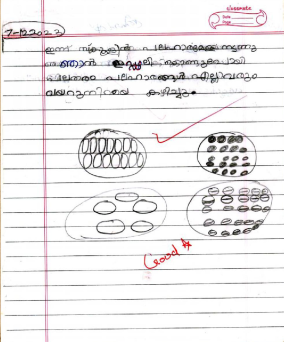 classmate
Date
Page
7-12-2023
ഇന്ന് സ്കൂളിൽ പലഹാരമേളയായിരുന്നു
ഞാൻ ഇഡ്ഡലി കൊണ്ടുപോയി
പലതരം പലഹാരങ്ങൾ എല്ലാവരും
വയറുനിറയെ കഴിച്ചു.
Good